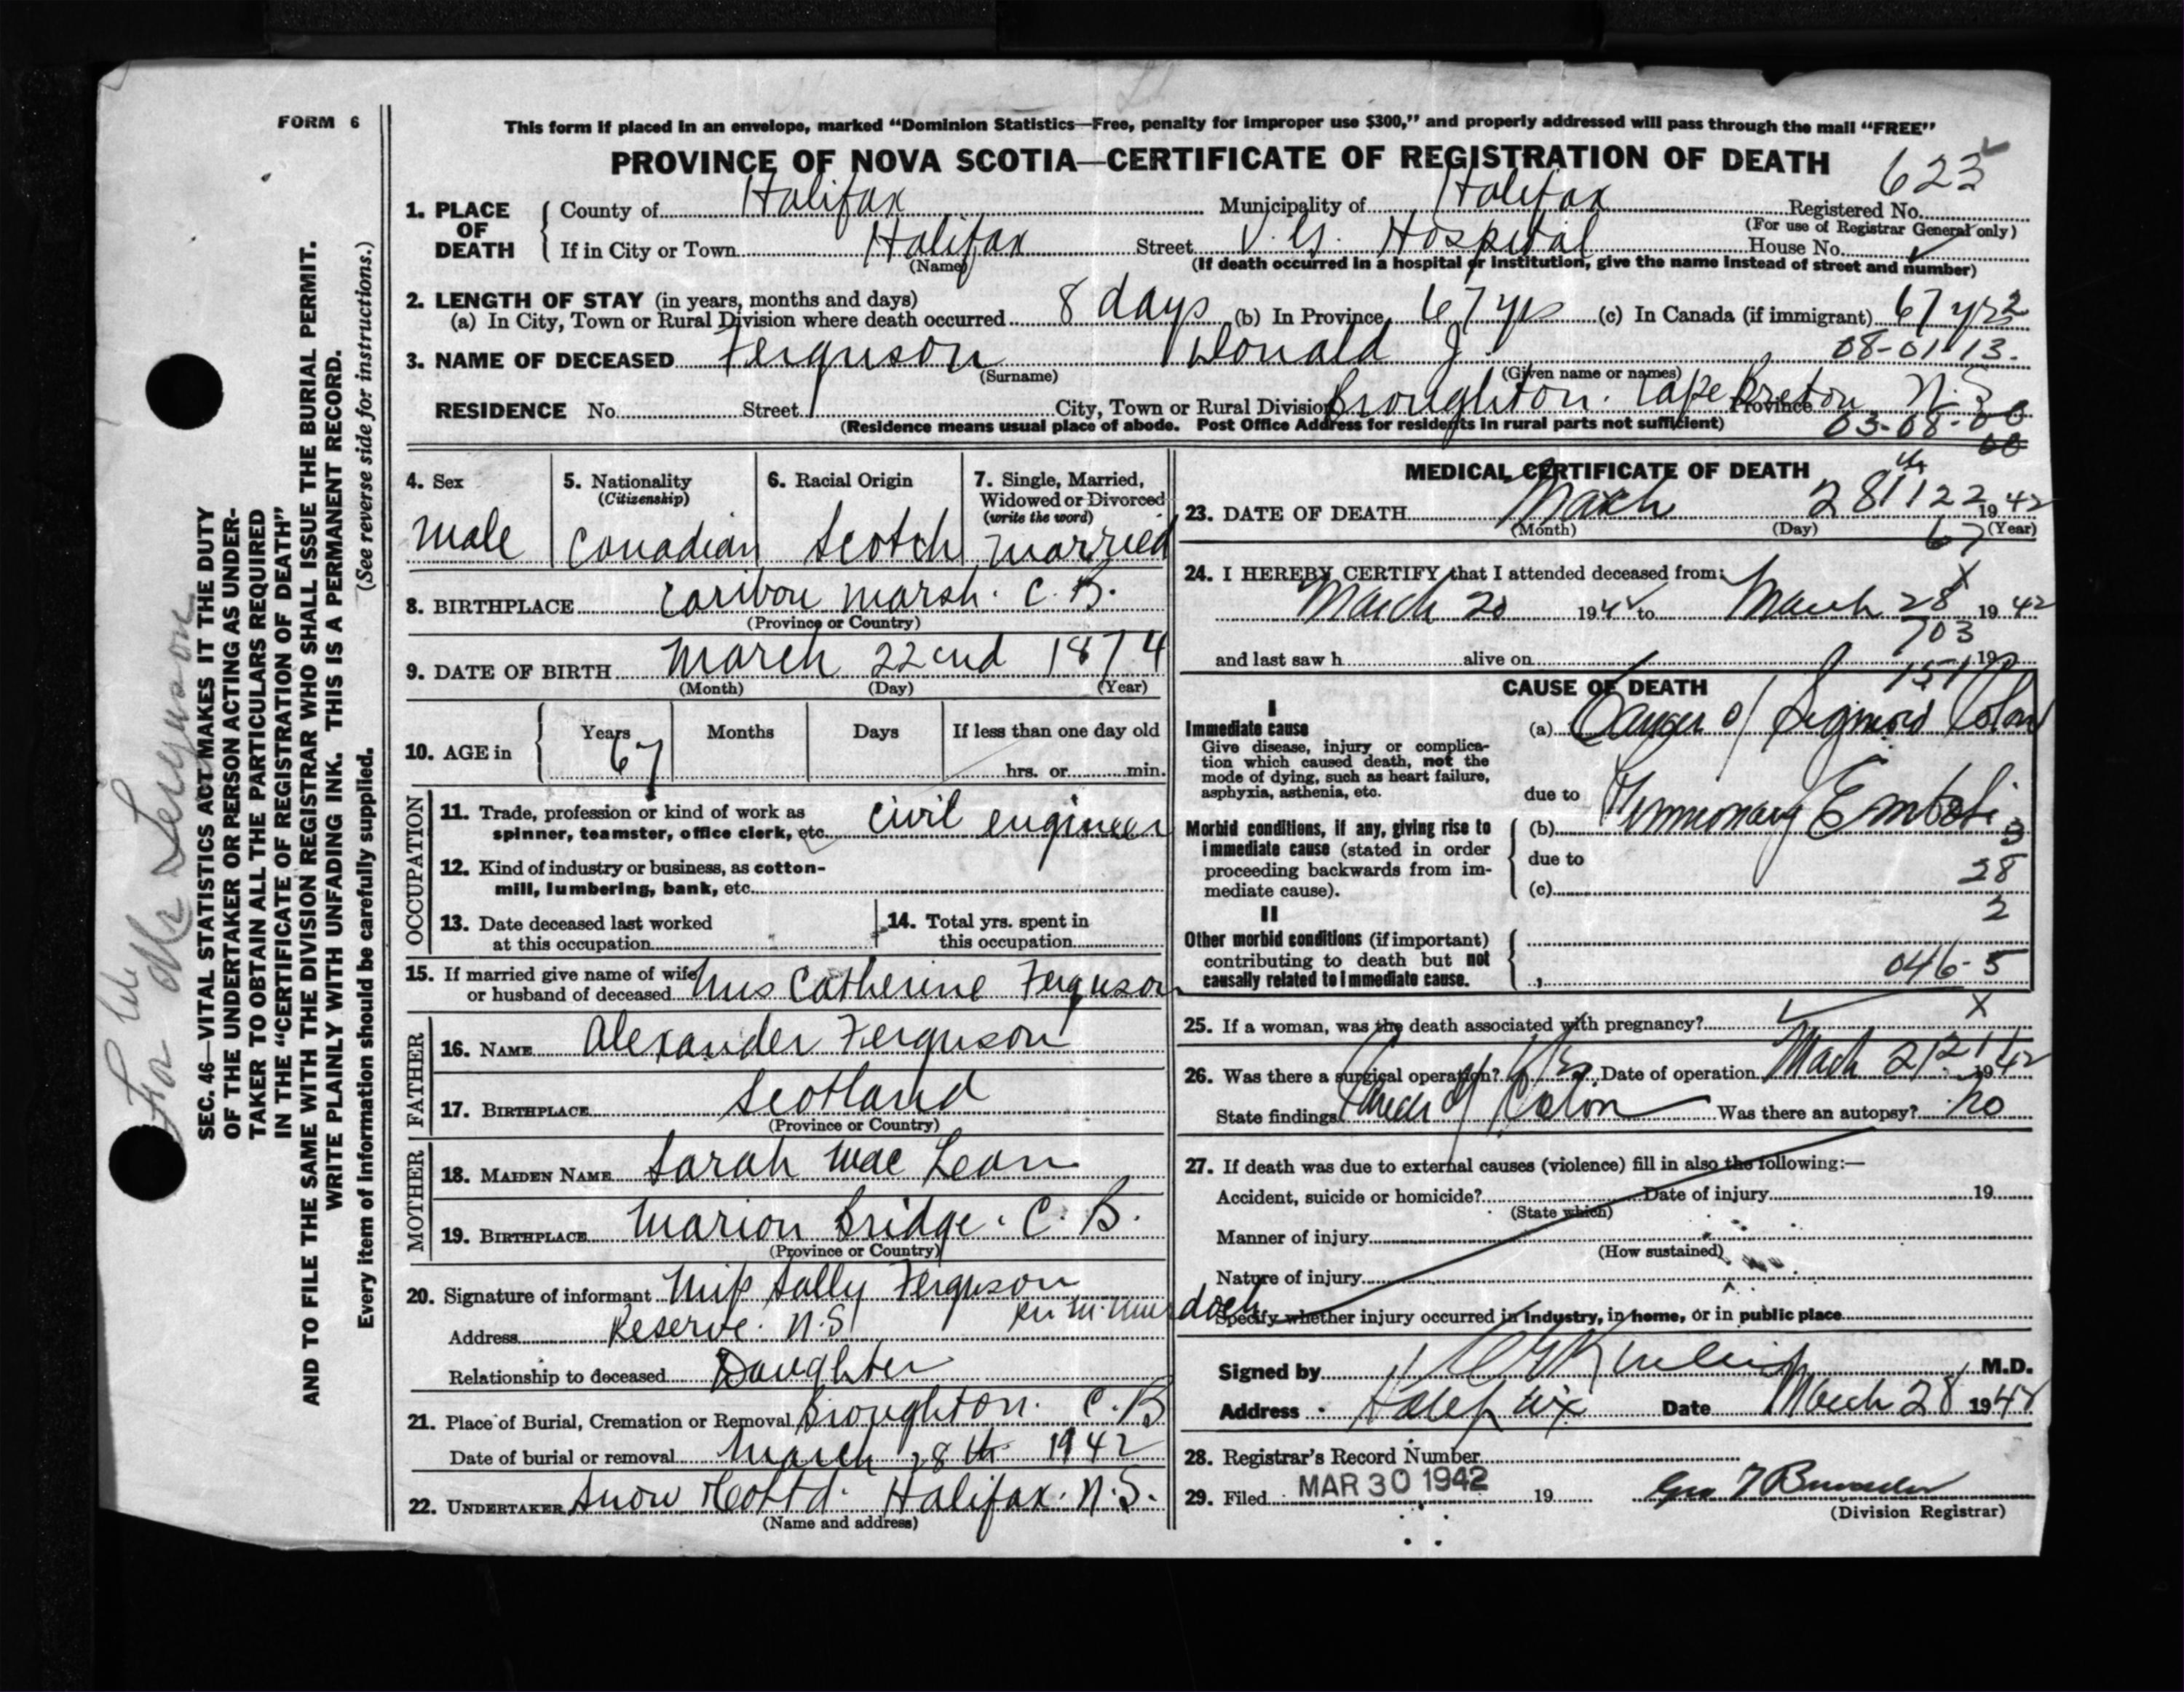 FORM 6
This form if placed in an envelope, marked "Dominion Statistics—Free, penalty for improper use $300," and properly addressed will pass through the mail "FREE"
PROVINCE OF NOVA SCOTIA—CERTIFICATE OF REGISTRATION OF DEATH
623
1. PLACE OF DEATH
County of Halifax Municipality of Halifax Registered No.
(For use of Registrar General only)
If in City or Town Halifax Street V. G. Hospital House No.
(Name) (If death occurred in a hospital or institution, give the name instead of street and number)
2. LENGTH OF STAY (in years, months and days)
(a) In City, Town or Rural Division where death occurred 8 days (b) In Province 67 yrs (c) In Canada (if immigrant) 67 yrs 2
08-01-13.
3. NAME OF DECEASED Ferguson Donald J.
(Surname) (Given name or names)
RESIDENCE No. Street City, Town or Rural Division Broughton. Cape Breton Province N.S
(Residence means usual place of abode. Post Office Address for residents in rural parts not sufficient) 03-08-00
00
4. Sex
male
5. Nationality
(Citizenship)
Canadian
6. Racial Origin
Scotch
7. Single, Married,
Widowed or Divorced
(write the word)
married
8. BIRTHPLACE Caribou marsh. C. B.
(Province or Country)
9. DATE OF BIRTH March 22nd 1874
(Month) (Day) (Year)
10. AGE in Years Months Days If less than one day old
67 hrs. or min.
OCCUPATION
11. Trade, profession or kind of work as
spinner, teamster, office clerk, etc. civil engineer
12. Kind of industry or business, as cotton-
mill, lumbering, bank, etc.
13. Date deceased last worked
at this occupation
14. Total yrs. spent in
this occupation
15. If married give name of wife
or husband of deceased Mrs Catherine Ferguson
FATHER
16. NAME Alexander Ferguson
17. BIRTHPLACE Scotland
(Province or Country)
MOTHER
18. MAIDEN NAME Sarah Mac Lean
19. BIRTHPLACE Marion Bridge. C. B.
(Province or Country)
20. Signature of informant Miss Sally Ferguson
Address Reserve. N.S
Relationship to deceased Daughter
21. Place of Burial, Cremation or Removal Broughton. C. B
Date of burial or removal March 28th 1942
22. UNDERTAKER Snow & Co Ltd. Halifax. N.S.
(Name and address)
MEDICAL CERTIFICATE OF DEATH
23. DATE OF DEATH March 28th 1122 1942
(Month) (Day) (Year)
67
24. I HEREBY CERTIFY that I attended deceased from: X
March 20 1942 to March 28 1942
703
and last saw h alive on 19
CAUSE OF DEATH
I
Immediate cause
Give disease, injury or complica-
tion which caused death, not the
mode of dying, such as heart failure,
asphyxia, asthenia, etc.
(a) Cancer of Sigmoid Colon
due to
Morbid conditions, if any, giving rise to
immediate cause (stated in order
proceeding backwards from im-
mediate cause).
(b) Pulmonary Emboli 3
due to 28
(c)
II 2
Other morbid conditions (if important)
contributing to death but not
causally related to immediate cause.
046-5
25. If a woman, was the death associated with pregnancy? X
26. Was there a surgical operation? Yes Date of operation March 21 1942
State findings Cancer of Colon Was there an autopsy? no
27. If death was due to external causes (violence) fill in also the following:—
Accident, suicide or homicide? Date of injury 19
(State which)
Manner of injury
(How sustained)
Nature of injury
Specify whether injury occurred in Industry, in home, or in public place
Signed by M.D.
Address Halifax Date March 28 1942
28. Registrar's Record Number
29. Filed MAR 30 1942 19
(Division Registrar)
SEC. 46—VITAL STATISTICS ACT MAKES IT THE DUTY
OF THE UNDERTAKER OR PERSON ACTING AS UNDER-
TAKER TO OBTAIN ALL THE PARTICULARS REQUIRED
IN THE "CERTIFICATE OF REGISTRATION OF DEATH"
AND TO FILE THE SAME WITH THE DIVISION REGISTRAR WHO SHALL ISSUE THE BURIAL PERMIT.
WRITE PLAINLY WITH UNFADING INK. THIS IS A PERMANENT RECORD.
Every item of information should be carefully supplied. (See reverse side for instructions.)
For Mr Ferguson